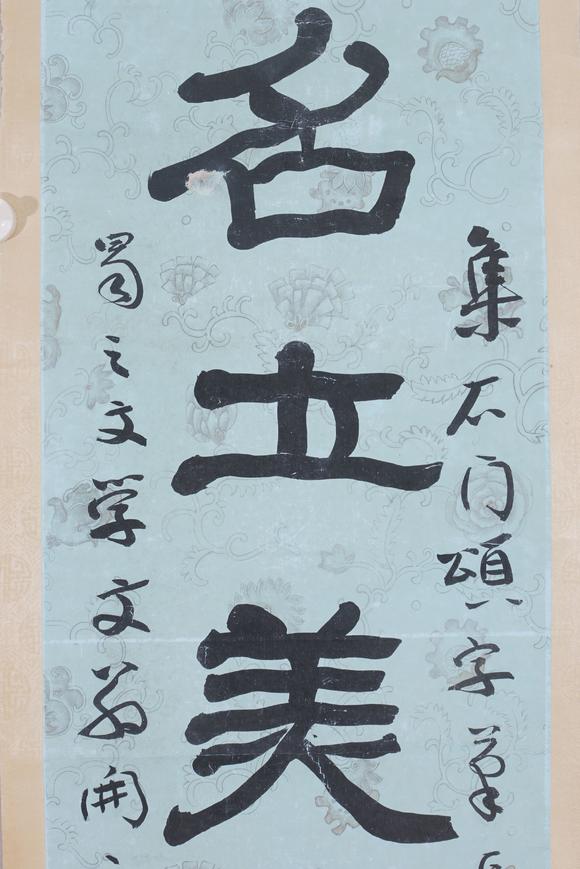 集石门頌字
名立美
蜀之文學文翁開